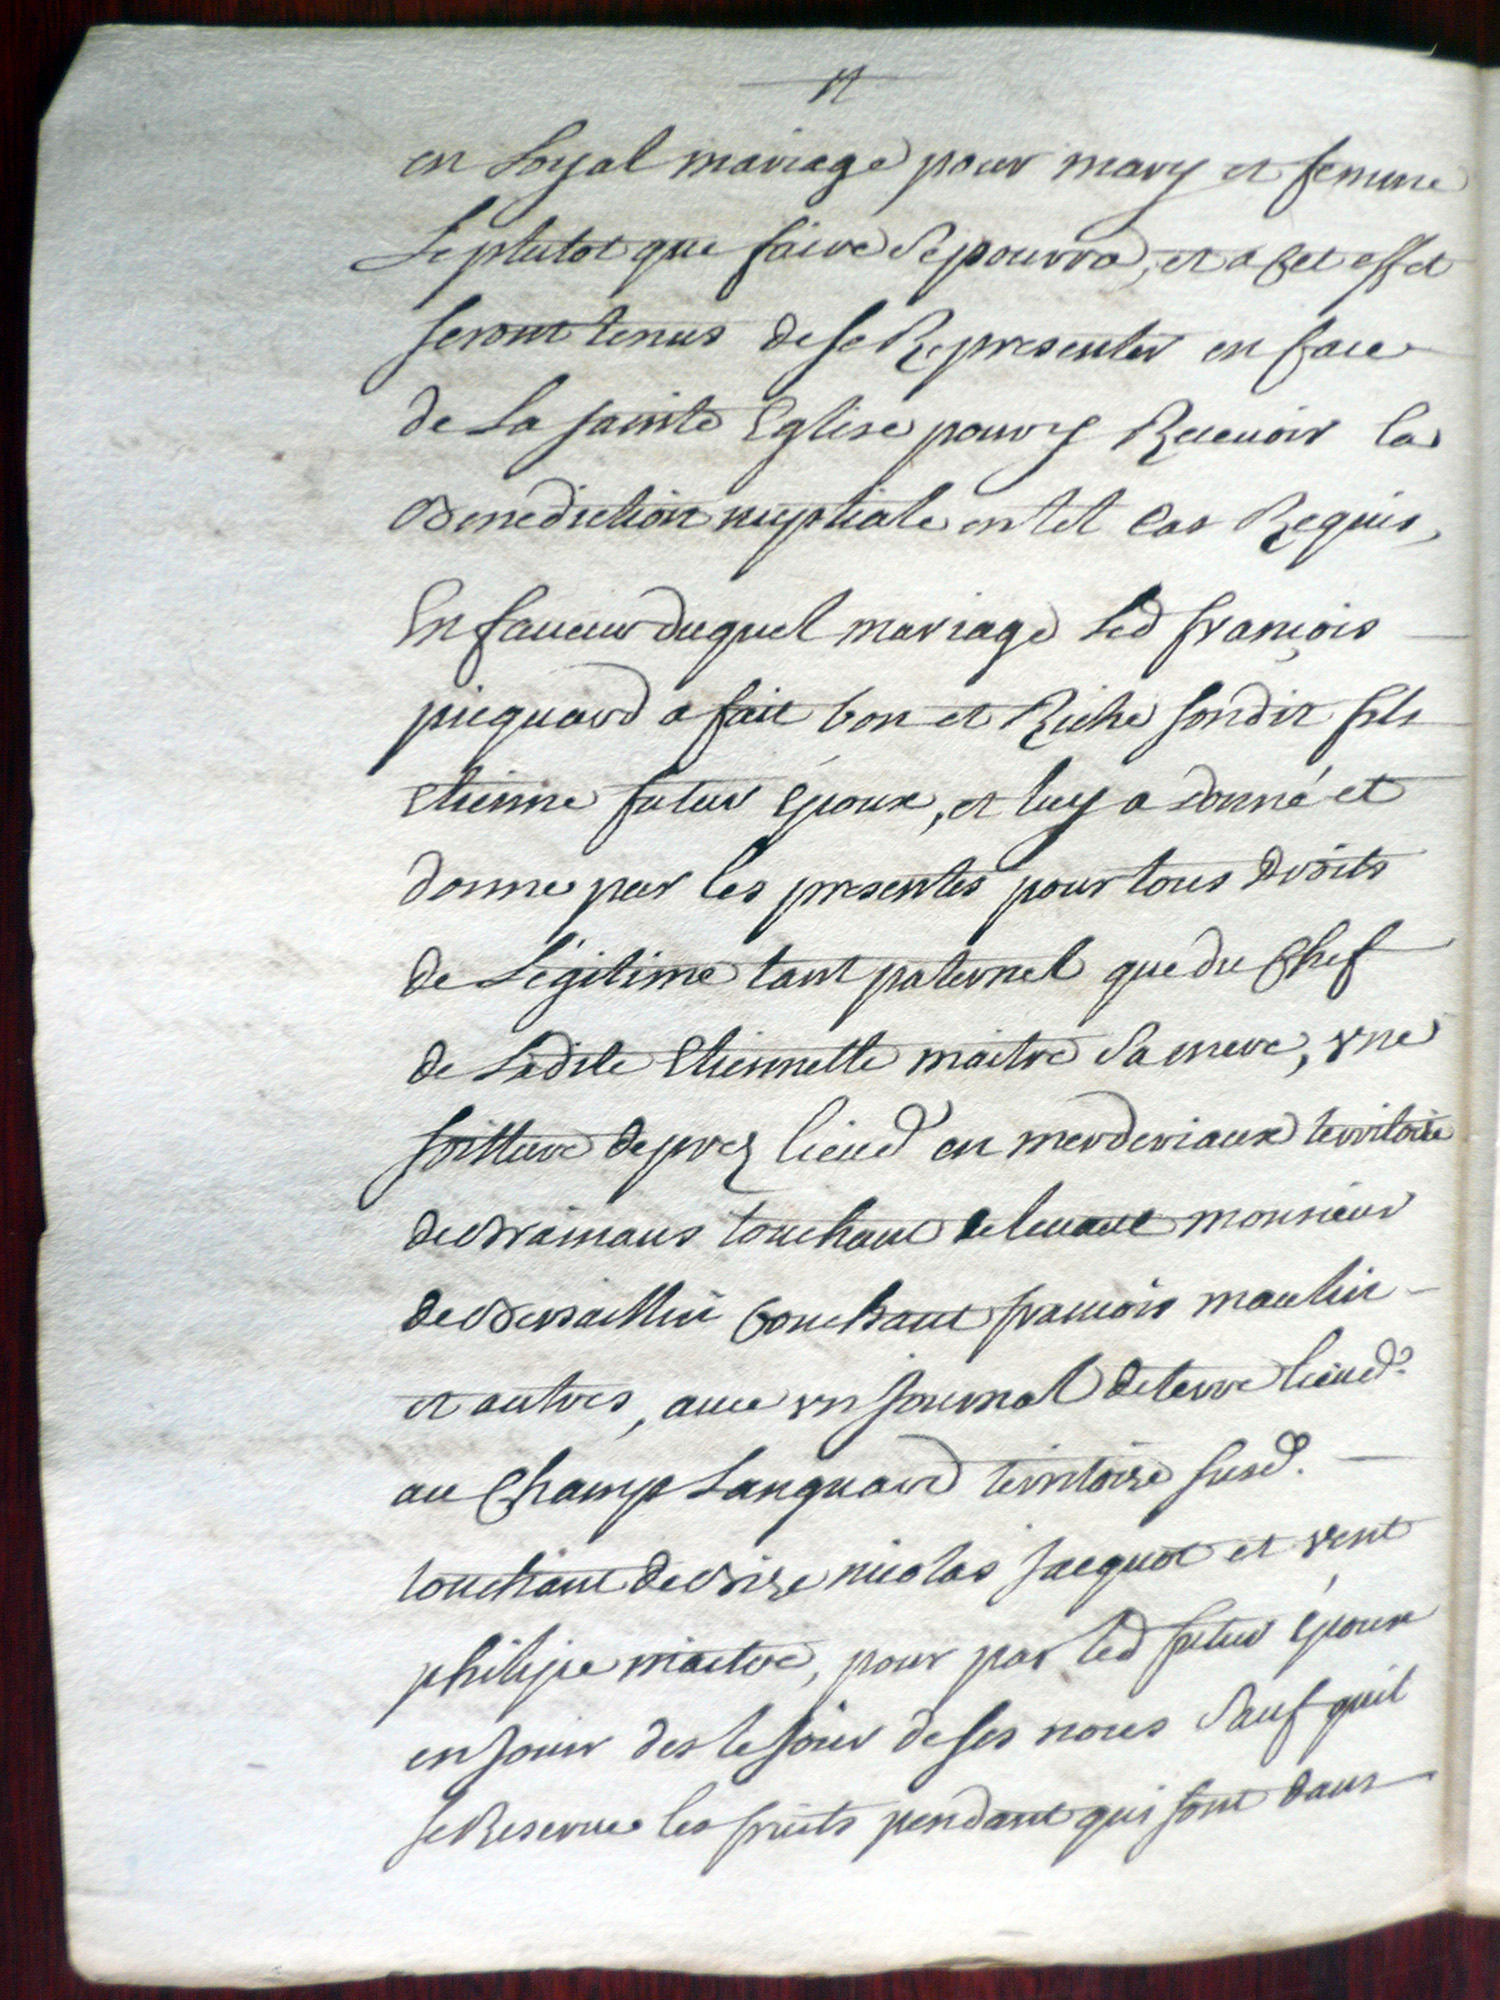 en Loyal mariage pour mary et femme
Le plutot que faire Se pourra, et a Cet effet
Seront tenus de Se Representer en face
de La Sainte Eglise pour y Recevoir la
Benediction nuptiale en tel Cas Requis,
En faveur duquel mariage Led françois
picquard a fait bon et Riche Sondit fils
Etienne futur Epoux, et luy a donné et
donne par les presentes pour tous droits
de Légitime tant paternel que du Chef
de Ladite Etiennette maitre Sa mere, vne
foitture de prez lieud en merderiaux territoire
de Brainans touchant de levant monsieur
de Bersaillin Couchant francois moulin
et autres, avec vn Journal de terre lieud.
au Champ Languard territoire Susd.
touchant de Bize nicolas Jacquot et vent
philipe maitre, pour par led futur Epoux
en Jouir des le Jour de Ses noces Sauf quil
Se Reserve les fruits pendant qui Sont dans